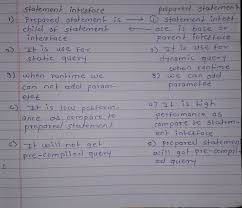 statement inteface prepared statement
1) Prepared statement is → 1) statement inteft
child of statement ← are is base or
interface parent interface
2) It is use for 2) It is use for
static query dynamic query
when runtime
3) when runtime we 3) we can add
can not add param- parametee
etee
4) It is low perform- 4) It is high
ance as compare to performance as
prepared statement compare to statem-
ent interface
5) It will not get 5) prepared statement
pre-compiled query will got pre-compil
ed query